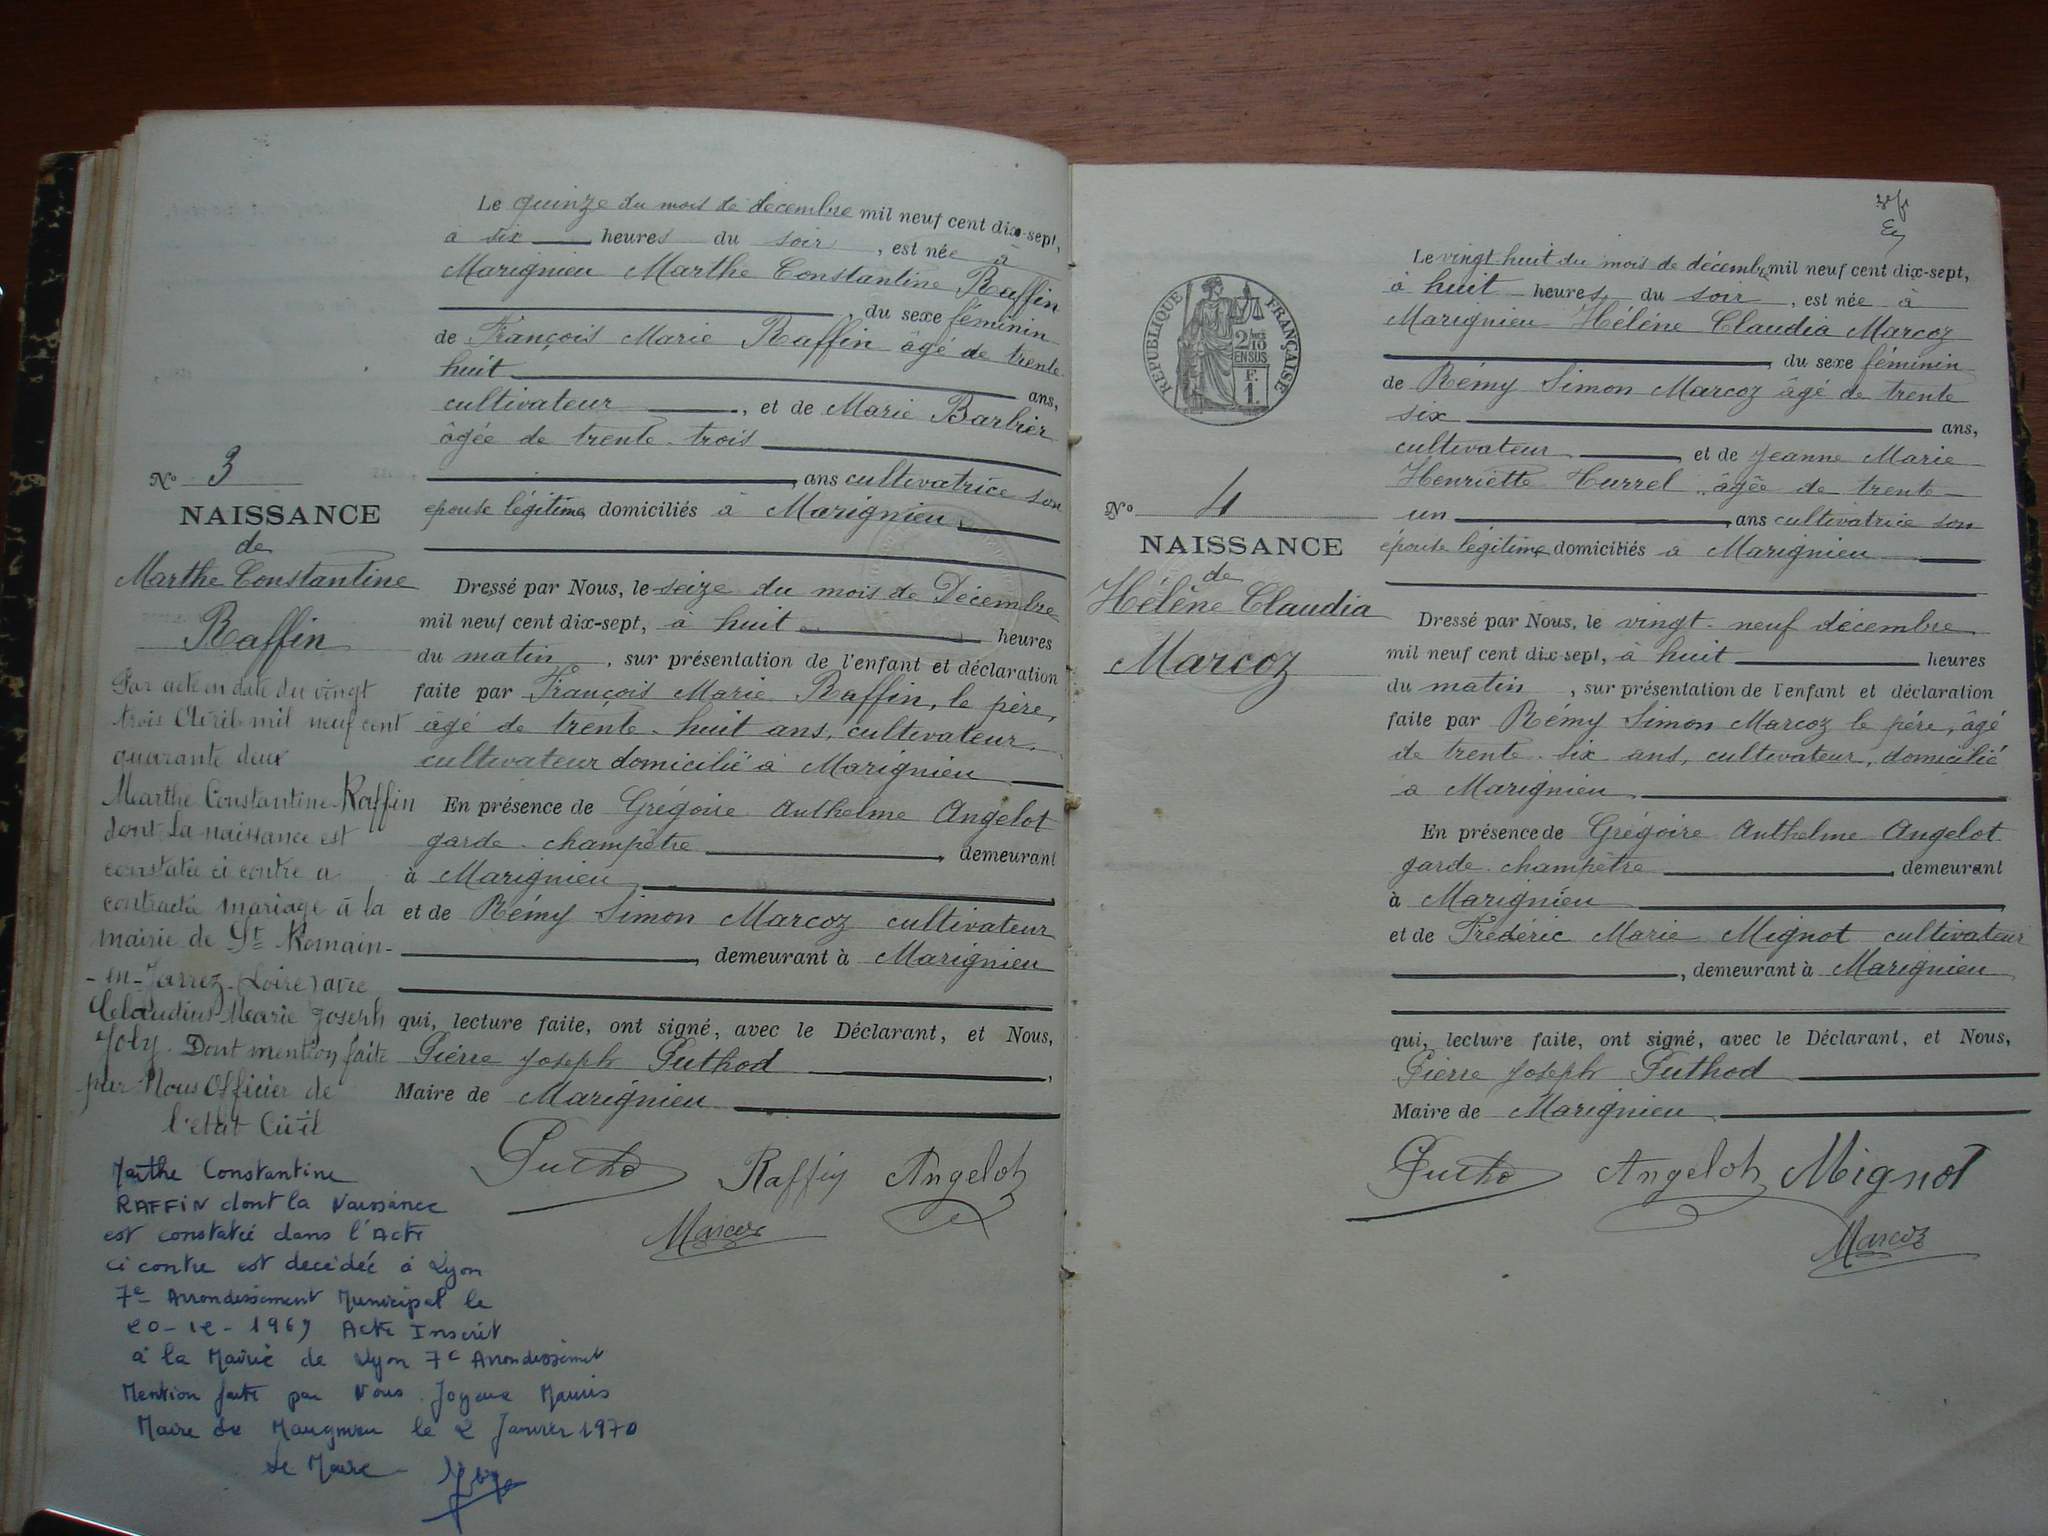 Le quinze du mois de décembre mil neuf cent dix-sept,
à six heures du soir, est née à
Marignieu Marthe Constantine Raffin
, du sexe féminin
de François Marie Raffin âgé de trente
huit ans,
cultivateur, et de Marie Barbier
âgée de trente-trois
, ans cultivatrice son
épouse légitime, domiciliés à Marignieu
No 3
NAISSANCE
de
Marthe Constantine
Raffin
Dressé par Nous, le seize du mois de Décembre
mil neuf cent dix-sept, à huit heures
du matin, sur présentation de l'enfant et déclaration
faite par François Marie Raffin, le père,
âgé de trente-huit ans, cultivateur,
cultivateur domicilié à Marignieu
En présence de Grégoire Anthelme Angelot
garde-champêtre, demeurant
à Marignieu
et de Rémy Simon Marcoz cultivateur
, demeurant à Marignieu
qui, lecture faite, ont signé, avec le Déclarant, et Nous,
Pierre Joseph Puthod,
Maire de Marignieu
Putho Raffin Angelot
Marcoz
Par acte en date du vingt
trois Avril mil neuf cent
quarante deux
Marthe Constantine Raffin
dont la naissance est
constatée ci contre a
contracté mariage à la
mairie de St Romain-
-en-Jarrez (Loire) avec
Claudius Marie Joseph
Joly. Dont mention faite
par Nous Officier de
l'état Civil
Marthe Constantine
RAFFIN dont la Naissance
est constatée dans l'Acte
ci contre est decédée à Lyon
7e Arrondissement Municipal le
20-12-1969 Acte Inscrit
à la Mairie de Lyon 7e Arrondissement
Mention faite par Nous Joyeux
Maire de Marignieu le 2 Janvier 1970
Le Maire
RÉPUBLIQUE FRANÇAISE
2/10
EN SUS
F.
1.
Le vingt huit du mois de décembre mil neuf cent dix-sept,
à huit heures, du soir, est née à
Marignieu Hélène Claudia Marcoz
, du sexe féminin
de Rémy Simon Marcoz âgé de trente
six ans,
cultivateur, et de Jeanne Marie
Henriette Turrel, âgée de trente-
un, ans cultivatrice son
épouse légitime, domiciliés à Marignieu
No 4
NAISSANCE
de
Hélène Claudia
Marcoz
Dressé par Nous, le vingt-neuf décembre
mil neuf cent dix-sept, à huit heures
du matin, sur présentation de l'enfant et déclaration
faite par Rémy Simon Marcoz le père, âgé
de trente-six ans, cultivateur, domicilié
à Marignieu
En présence de Grégoire Anthelme Angelot
garde-champêtre, demeurant
à Marignieu
et de Frédéric Marie Mignot cultivateur
, demeurant à Marignieu
qui, lecture faite, ont signé, avec le Déclarant, et Nous,
Pierre Joseph Puthod
Maire de Marignieu
Putho Angelot Mignot
Marcoz